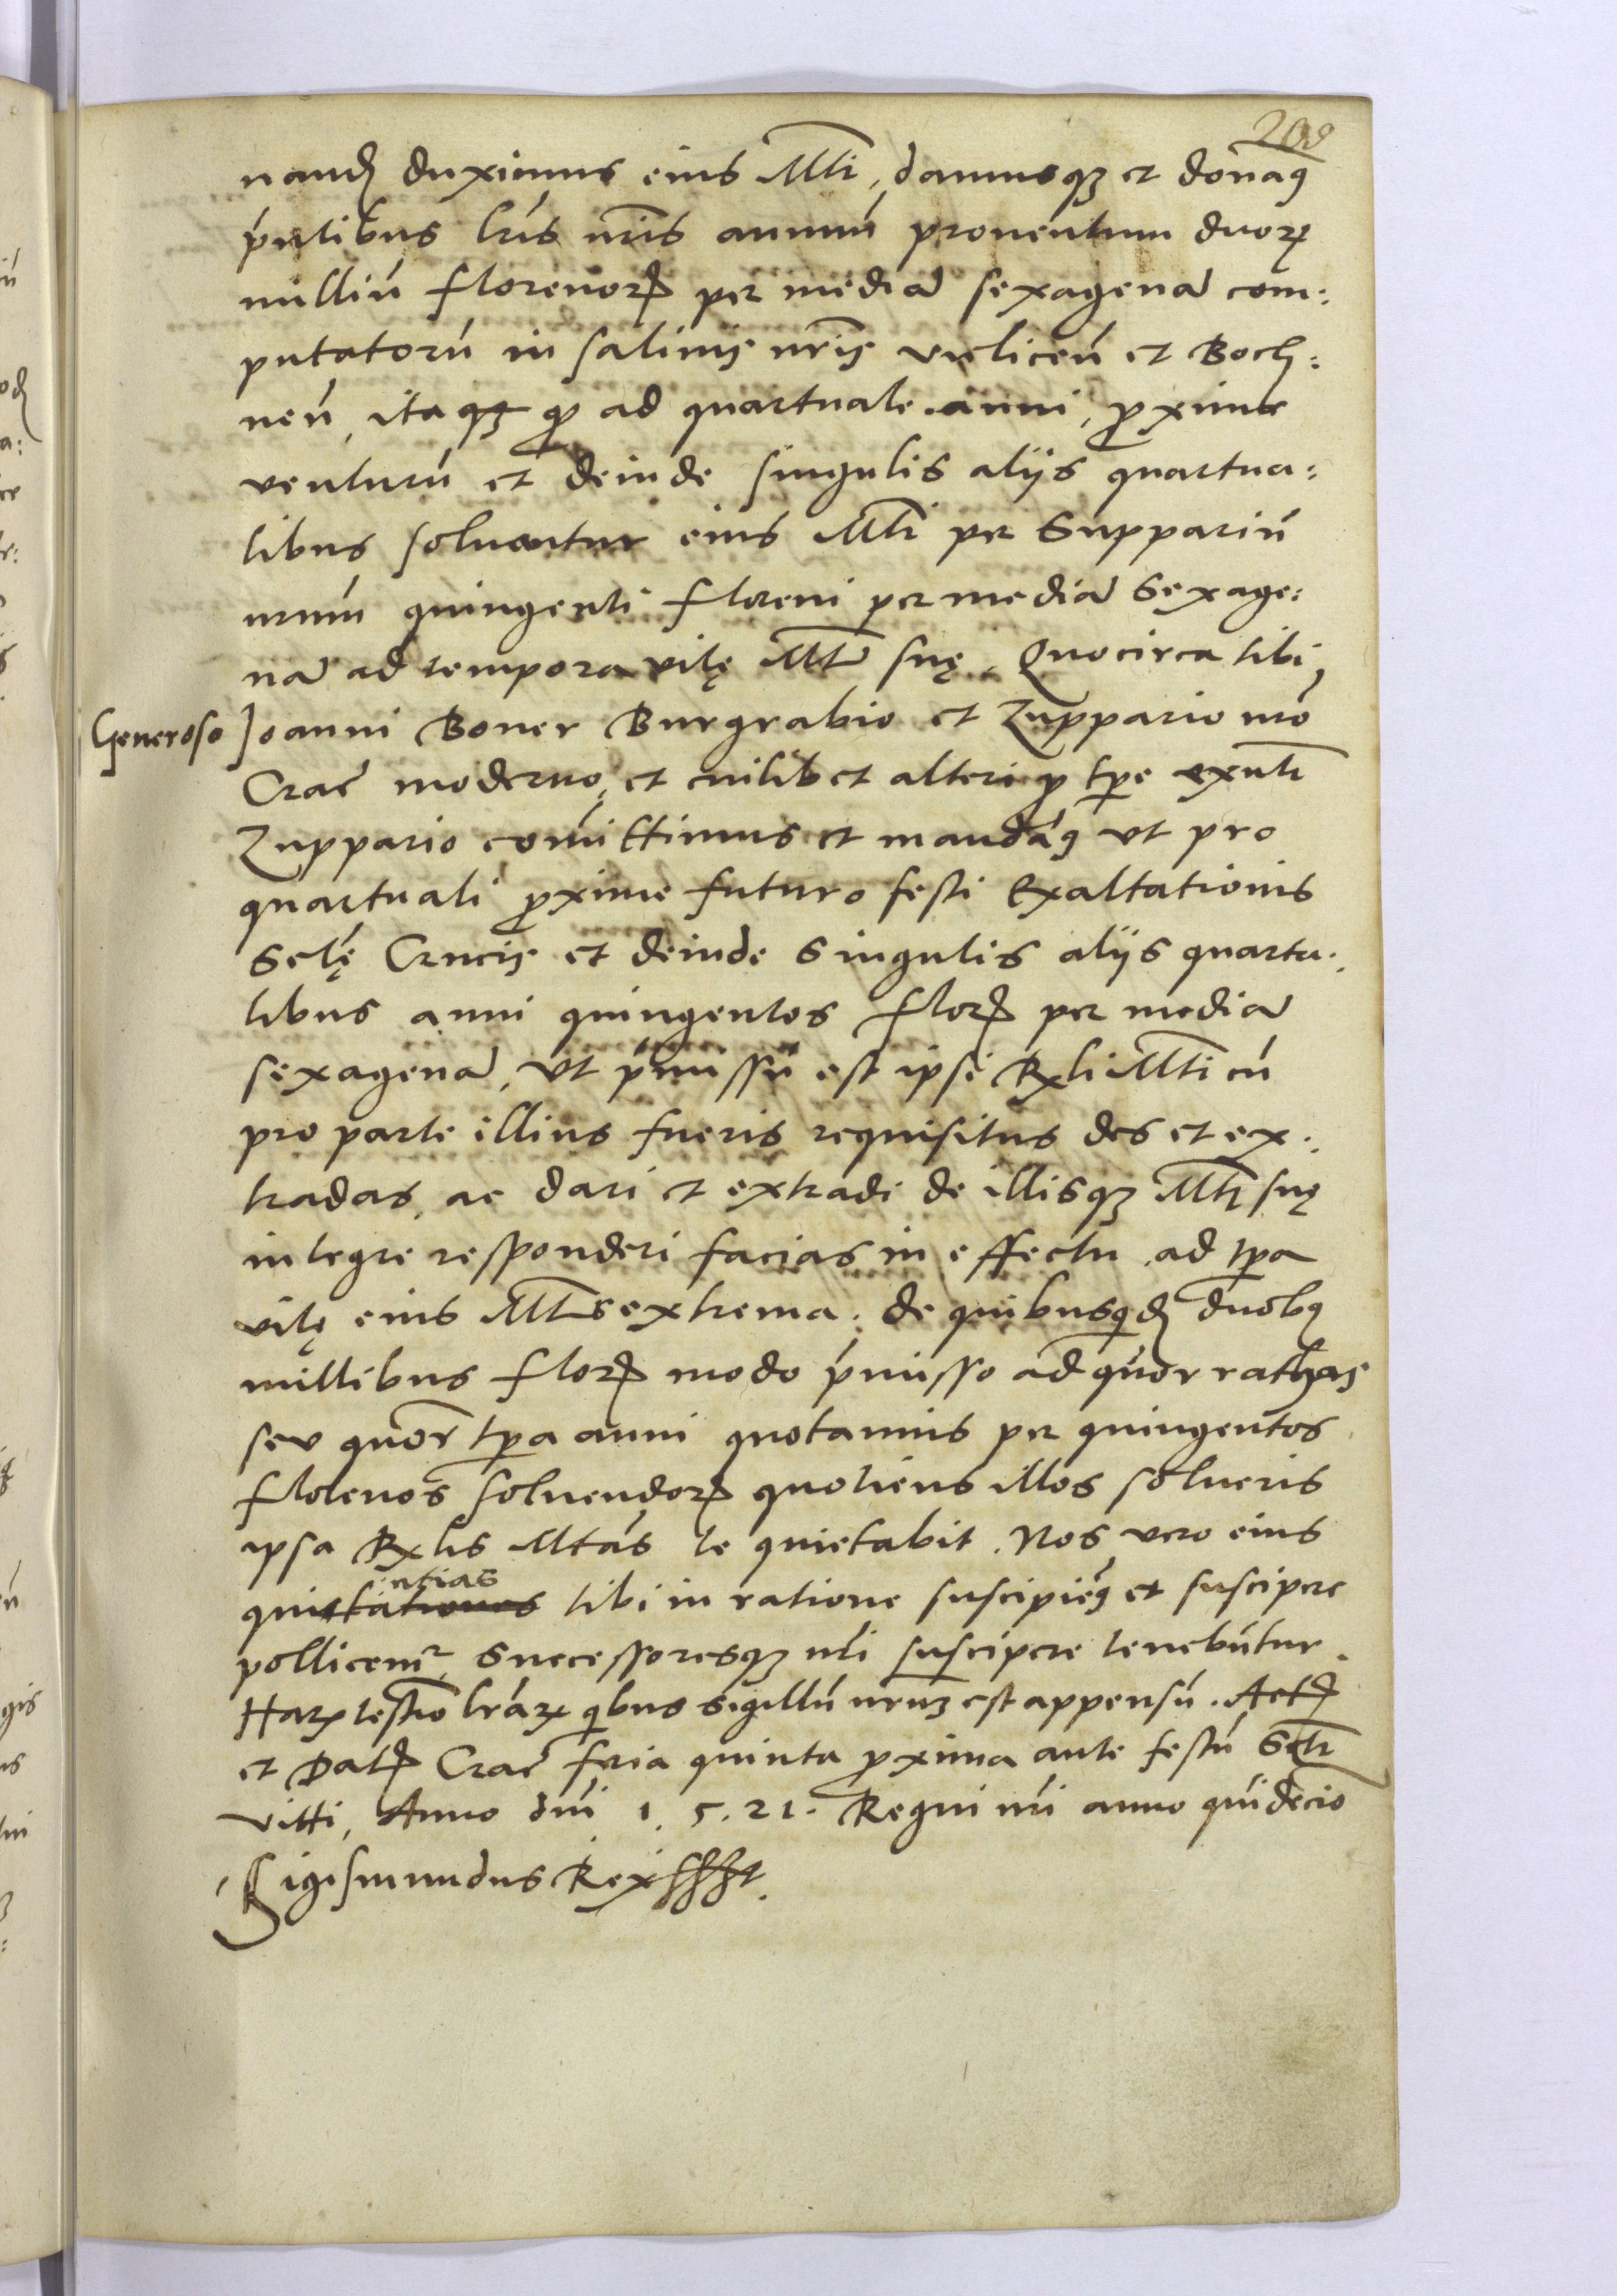 209
nand duximus eius Mti, damusq3 et donam9
p̃ntibus lr̃is nr̃is annuũ prouentum duorꝝ
milliũ florenorꝝ per mediã sexagenã com:
putatorũ in salinis nr̃is vieliceñ et Boch:
neñ, ita q3 ꝓ ad quartuale anni, ꝓxime
venturũ et deinde singulis alijs quartua:
libus soluantur eius Mti per Suppariũ
nrum̃ quingenti floreni per mediã Sexage:
nã ad tempora vitę Mt̃ suę. Quocirca tibi
Generoso Joanni Boner Burgrabio et Zuppario nrõ
Crac̃ moderno, et cuilibet alteri ꝓ tp̃e exñti
Zuppario com̃ittimus et mandam̃9 vt pro
quartuali ꝓxime futuro festi Exaltationis
Sctę Crucis et deinde Singulis alijs quartu:
libus anni quingentos florꝝ per mediã
sexagenã, vt p̃missũ est ipsi Rxli Mti cũ
pro parte illius fueris requisitus des et ex:
tradas, ac dari et extradi de illisq3 Mti suę
integre responderi facias in effectu ad tp̃a
vitę eius Mt̃s extrema. de quibusqd duob9
millibus florꝝ modo p̃misso ad quor rathas
seu quor tp̃a anni quotannis per quingentos
florenos soluendorꝝ quotiens illos solueris
ipsa Rxlis Mtas te quietabit. Nos vero eius
quietationes ntias tibi in ratione suscipiem̃9 et suscipere
pollicemr, Successoresq3 nr̃i suscipere tenebũtur.
Harꝝ testio lr̃arꝝ qibus sigillũ nrum3 est appensũ. Actꝝ
et Datꝝ Crac̃ feria quinta ꝓxima ante festũ Scti
vitti, Anno dñi 1.5.21. Regni nr̃i anno quĩdecio
Sigismundus Rex sst.